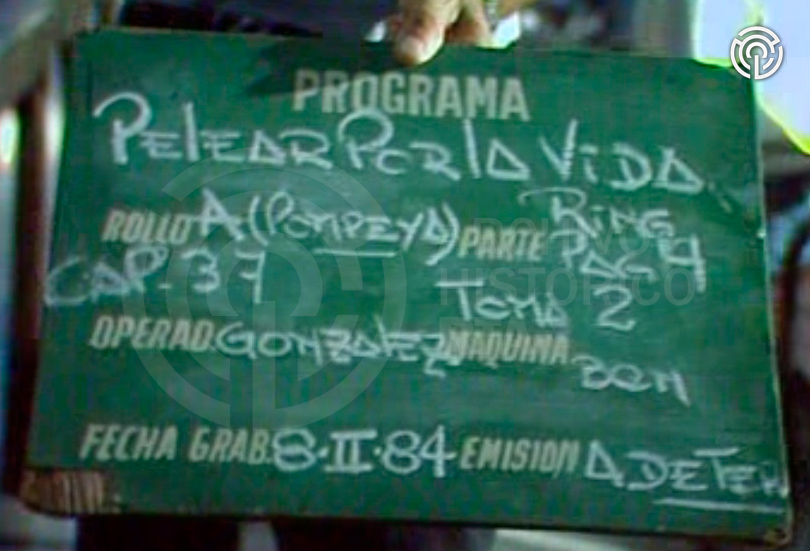 PROGRAMA
Pelear Por la Vida.
ROLLO A. (Pompeya) PARTE Ring
CAP. 37 Pag 4
Toma 2
OPERAD. Gonzalez MAQUINA BCN
FECHA GRAB. 8·II·84 EMISION A. DETER
HISTÓRICO